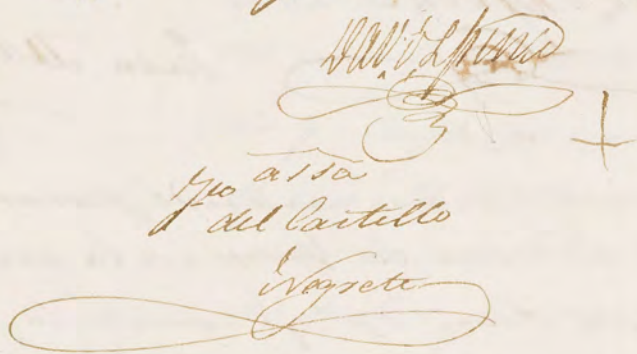 David Spence
Fco assa
del Castillo
Negrete